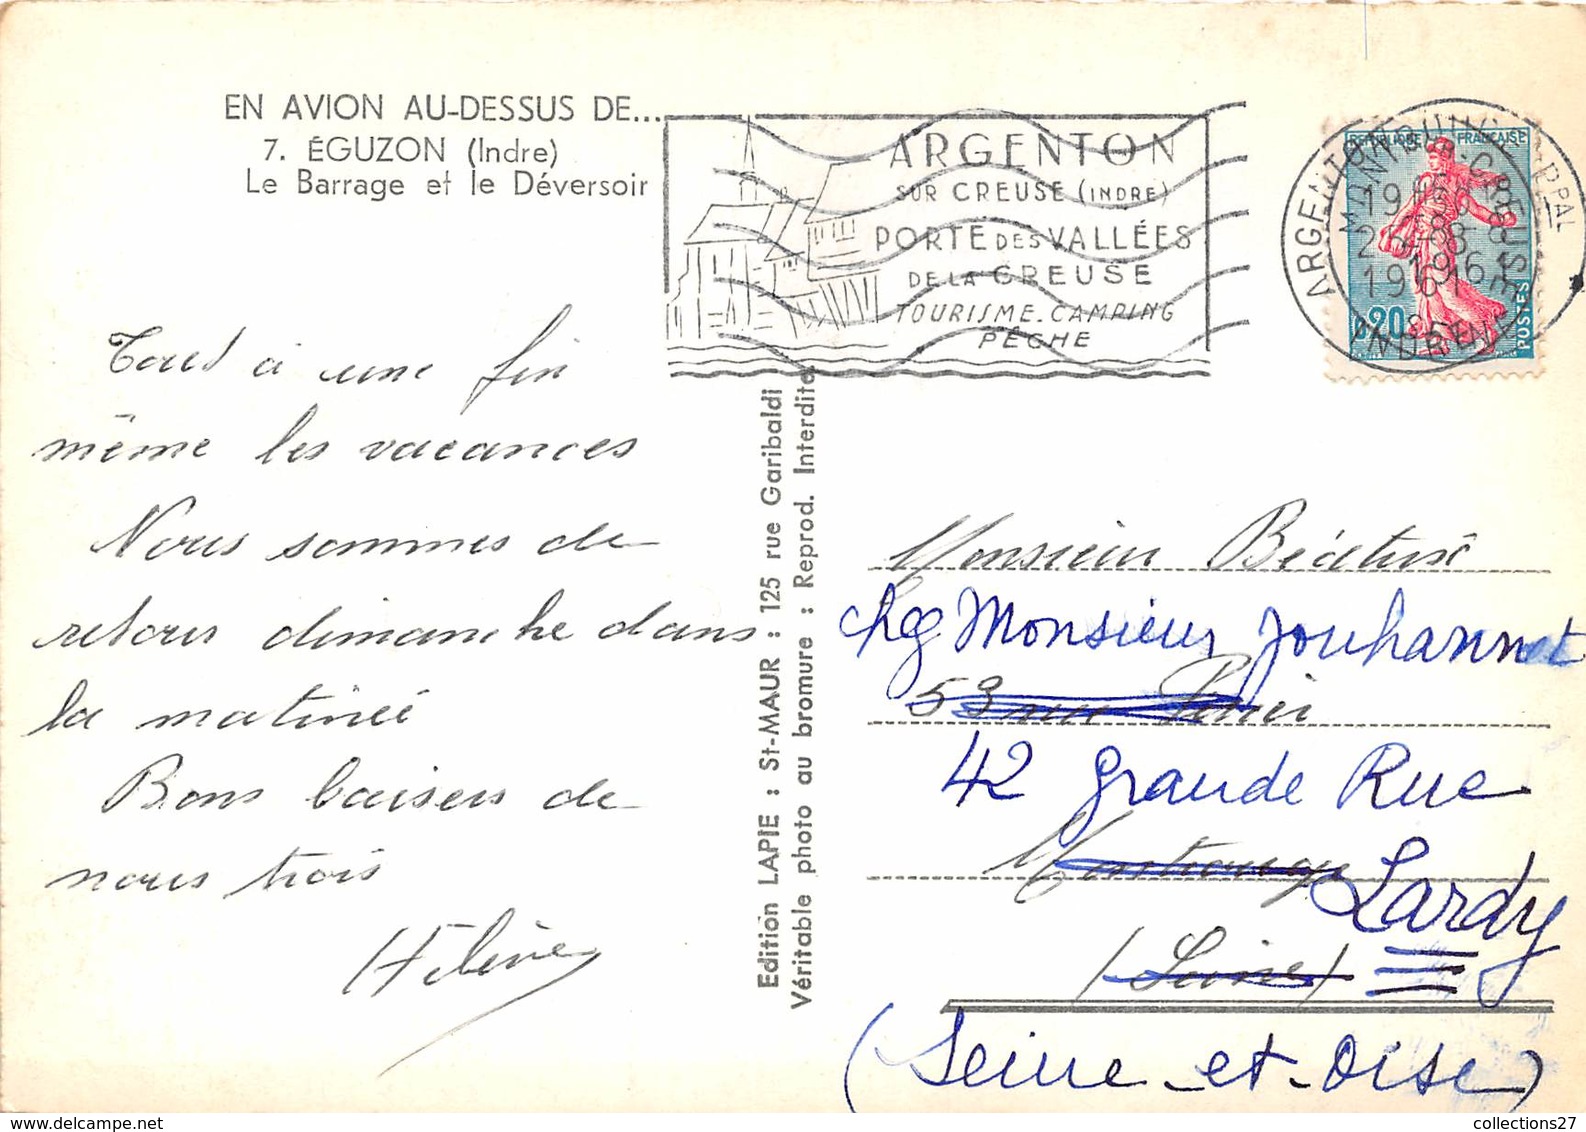 EN AVION AU-DESSUS DE...
7. ÉGUZON (Indre)
Le Barrage et le Déversoir
ARGENTON
SUR CREUSE (INDRE)
PORTE DES VALLÉES
DE LA CREUSE
TOURISME-CAMPING
PÊCHE
REPUBLIQUE FRANÇAISE
0,20
POSTES
Tout a une fin
même les vacances
Nous sommes de
retour dimanche dans
la matinée
Bons baisers de
nous trois
Hélène
Edition LAPIE : St-MAUR : 125 rue Garibaldi
Véritable photo au bromure : Reprod. Interdite
Monsieur
chez Monsieur Jouhannet
53 rue
42 Grande Rue
Montrouge
Lardy
(Seine)
(Seine-et-Oise)
collections27